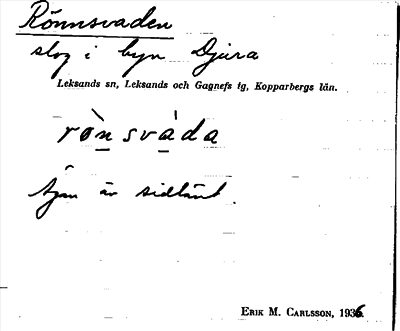 Rönnsvaden
slog i byn Djura
Leksands sn, Leksands och Gagnefs tg, Kopparbergs län.
rønsvàda
är sidlänt.
ERIK M. CARLSSON, 1936.